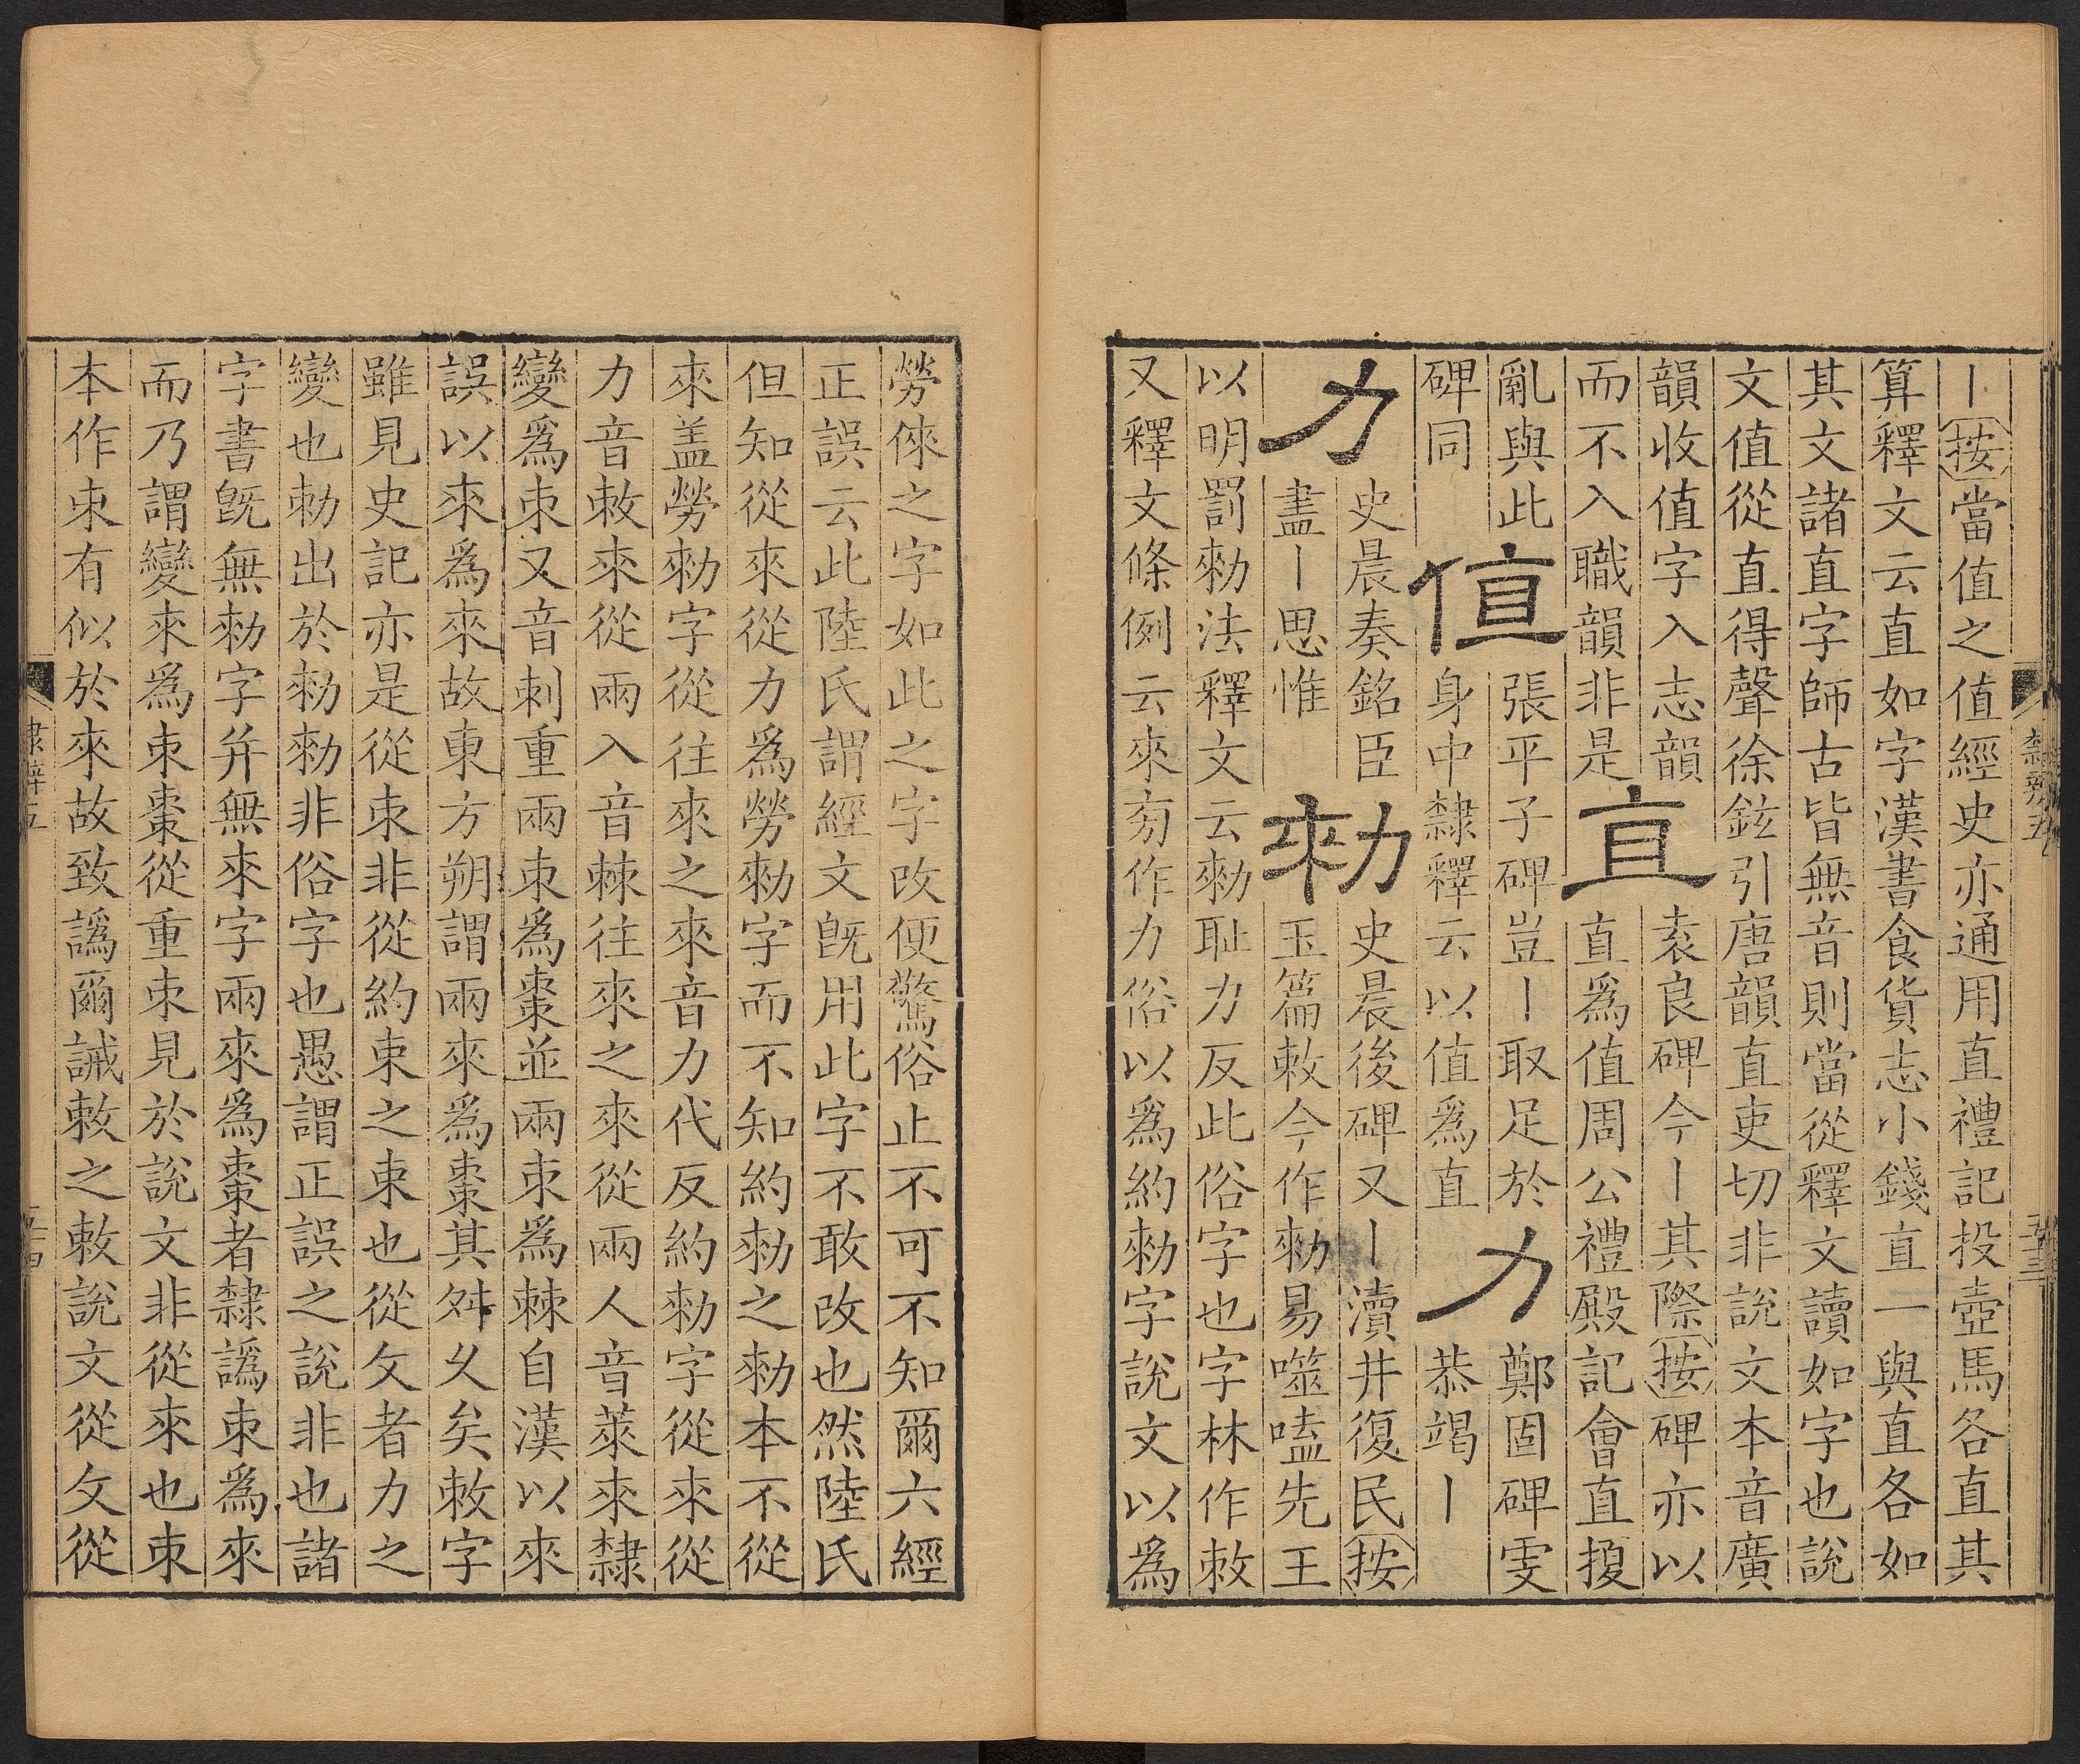 丨按當值之值經史亦通用直禮記投壺馬各直其
算釋文云直如字漢書食貨志小錢直一與直各如
其文諸直字師古皆無音則當從釋文讀如字也說
文值從直得聲徐鉉引唐韻直吏切非說文本音廣
韻收值字入志韻
而不入職韻非是
直
袁良碑今丨其際按碑亦以
直爲值周公禮殿記會直擾
亂與此
碑同
值
張平子碑豈丨取足於
身中隸釋云以值爲直
力
鄭固碑雯
恭竭丨
力
史晨奏銘臣
盡丨思惟
勑
史晨後碑又丨瀆井復民按
玉篇敕今作勑易噬嗑先王
以明罰勑法釋文云勑耻力反此俗字也字林作敕
又釋文條例云來旁作力俗以爲約勑字說文以爲
隸辨五
五十三
勞倈之字如此之字改便驚俗止不可不知爾六經
正誤云此陸氏謂經文旣用此字不敢改也然陸氏
但知從來從力爲勞勑字而不知約勑之勑本不從
來盖勞勑字從往來之來音力代反約勑字從來從
力音敕來從兩入音棘往來之來從兩人音萊來隸
變爲朿又音刺重兩朿爲棗並兩朿爲棘自漢以來
誤以朿爲來故東方朔謂兩來爲棗其舛久矣敕字
雖見史記亦是從朿非從約束之束也從攵者力之
變也勅出於勑勑非俗字也愚謂正誤之說非也諸
字書旣無勑字并無來字兩來爲棗者隸譌朿爲來
而乃謂變來爲朿棗從重朿見於說文非從來也朿
本作朿有似於來故致譌爾誡敕之敕說文從攵從
隸辨五
五十四